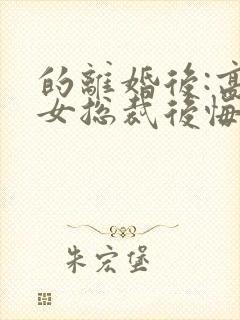 的離婚後:高
女总裁後悔
朱宏堡